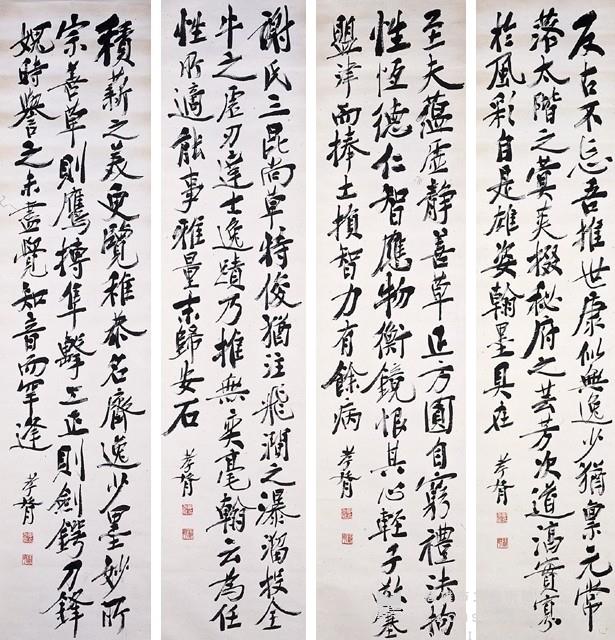 反古不忘吾推世康似無逸少猶稟元常
蒂太階之蓂莢掇秘府之芸芳次道瀉實寡
於風彩自是雄姿翰墨具在
孝胥
至夫蘊虛靜善草正方圓自窮禮法拘
性恆德仁智應物衡鏡恨其心輕子敬塞
盟津而捧土損智力有餘病
孝胥
謝氏三昆尚草特俊猶注飛澗之瀑溜投全
牛之虛刃達士逸蹟乃推無奕毫翰云為任
性所適能事雅量末歸安石
孝胥
積薪之美更覽稚恭名齊逸少墨妙所
宗善草則鷹搏隼擊工正則劍鍔刀鋒
愧時譽之未盡覺知音而罕逢
孝胥